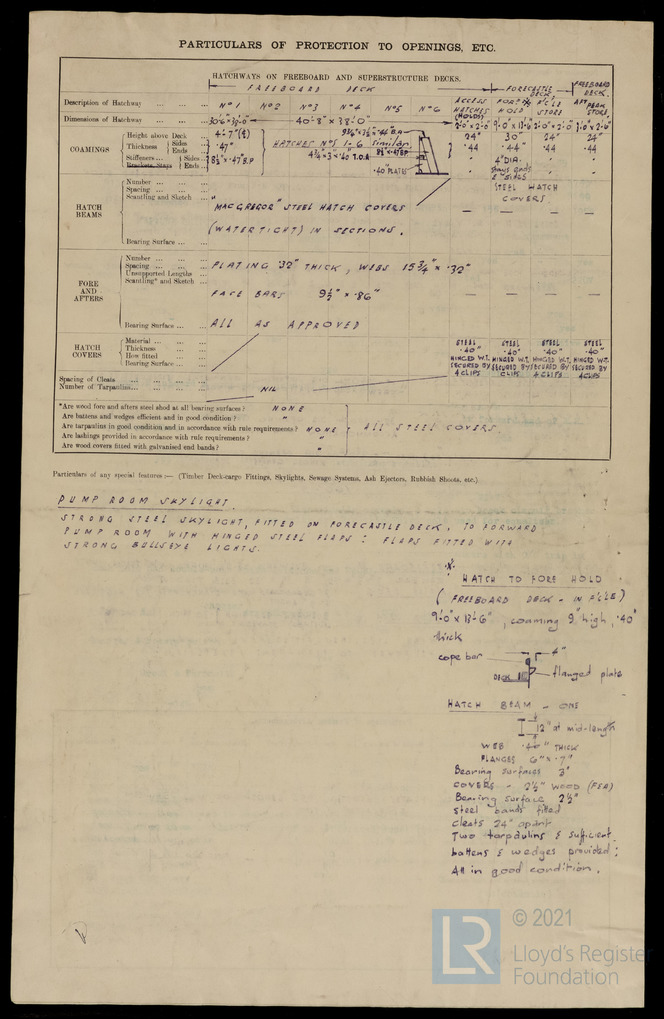 PARTICULARS OF PROTECTION TO OPENINGS, ETC.
HATCHWAYS ON FREEBOARD AND SUPERSTRUCTURE DECKS.
FREEBOARD DECK FORECASTLE DECK. FREEBOARD DECK.
Description of Hatchway ... ... ... No 1 No 2 No 3 No 4 No 5 No 6 ACCESS HATCHES (HOLDS) FORE HOLD F'CLE STORE AFT PEAK STORE
Dimensions of Hatchway ... ... ... 40'-8" x 38'-0" 2'-0" x 2'-0" 9'-0" x 13'-6" 2'-0" x 2'-0" 2'-0" x 2'-6"
COAMINGS
Height above Deck ... 4'-7" 24" 30" 24" 24"
Thickness Sides Ends .47" HATCHES Nos 1-6 similar .44 .44 .44 .44
Stiffeners Sides 8½" x .47 B.P 4" DIA.
Brackets, Stays Ends .40" PLATES stays ends & sides
HATCH BEAMS
Number ... ... ... STEEL HATCH COVERS
Spacing ... ... ...
Scantling and Sketch ...
"MACGREGOR" STEEL HATCH COVERS
(WATERTIGHT) IN SECTIONS.
Bearing Surface ... ...
FORE AND AFTERS
Number ... ... ...
Spacing ... ... ... PLATING .32" THICK, WEBS 15¾" x .32"
Unsupported Lengths
Scantling* and Sketch ...
FACE BARS 9½" x .86"
Bearing Surface ... ... ALL AS APPROVED
HATCH COVERS
Material ... ... STEEL STEEL STEEL STEEL
Thickness ... ... .40" .40" .40" .40"
How fitted ... ... HINGED W.T. HINGED W.T. HINGED W.T. HINGED W.T.
Bearing Surface ... SECURED BY SECURED BY SECURED BY SECURED BY
4 CLIPS CLIPS 4 CLIPS 4 CLIPS
Spacing of Cleats ... ... ... ...
Number of Tarpaulins ... ... ... ... NIL
*Are wood fore and afters steel shod at all bearing surfaces? NONE
Are battens and wedges efficient and in good condition? "
Are tarpaulins in good condition and in accordance with rule requirements? NONE ALL STEEL COVERS.
Are lashings provided in accordance with rule requirements? "
Are wood covers fitted with galvanised end bands? "
Particulars of any special features:— (Timber Deck-cargo Fittings, Skylights, Sewage Systems, Ash Ejectors, Rubbish Shoots, etc.)
PUMP ROOM SKYLIGHT.
STRONG STEEL SKYLIGHT, FITTED ON FORECASTLE DECK, TO FORWARD
PUMP ROOM WITH HINGED STEEL FLAPS: FLAPS FITTED WITH
STRONG BULLSEYE LIGHTS.
HATCH TO FORE HOLD
(FREEBOARD DECK - IN F'CLE)
9'-0" x 13'-6", coaming 9" high, .40"
thick
cope bar 4"
DECK flanged plate
HATCH BEAM - ONE
12" at mid-length
WEB .40" THICK
FLANGES 6" x .7"
Bearing surfaces 3"
COVERS - 2½" WOOD (FIR)
Bearing surface 2½"
Steel bands fitted
Cleats 24" apart
Two tarpaulins & sufficient
battens & wedges provided:
All in good condition.
LR © 2021
Lloyd's Register
Foundation